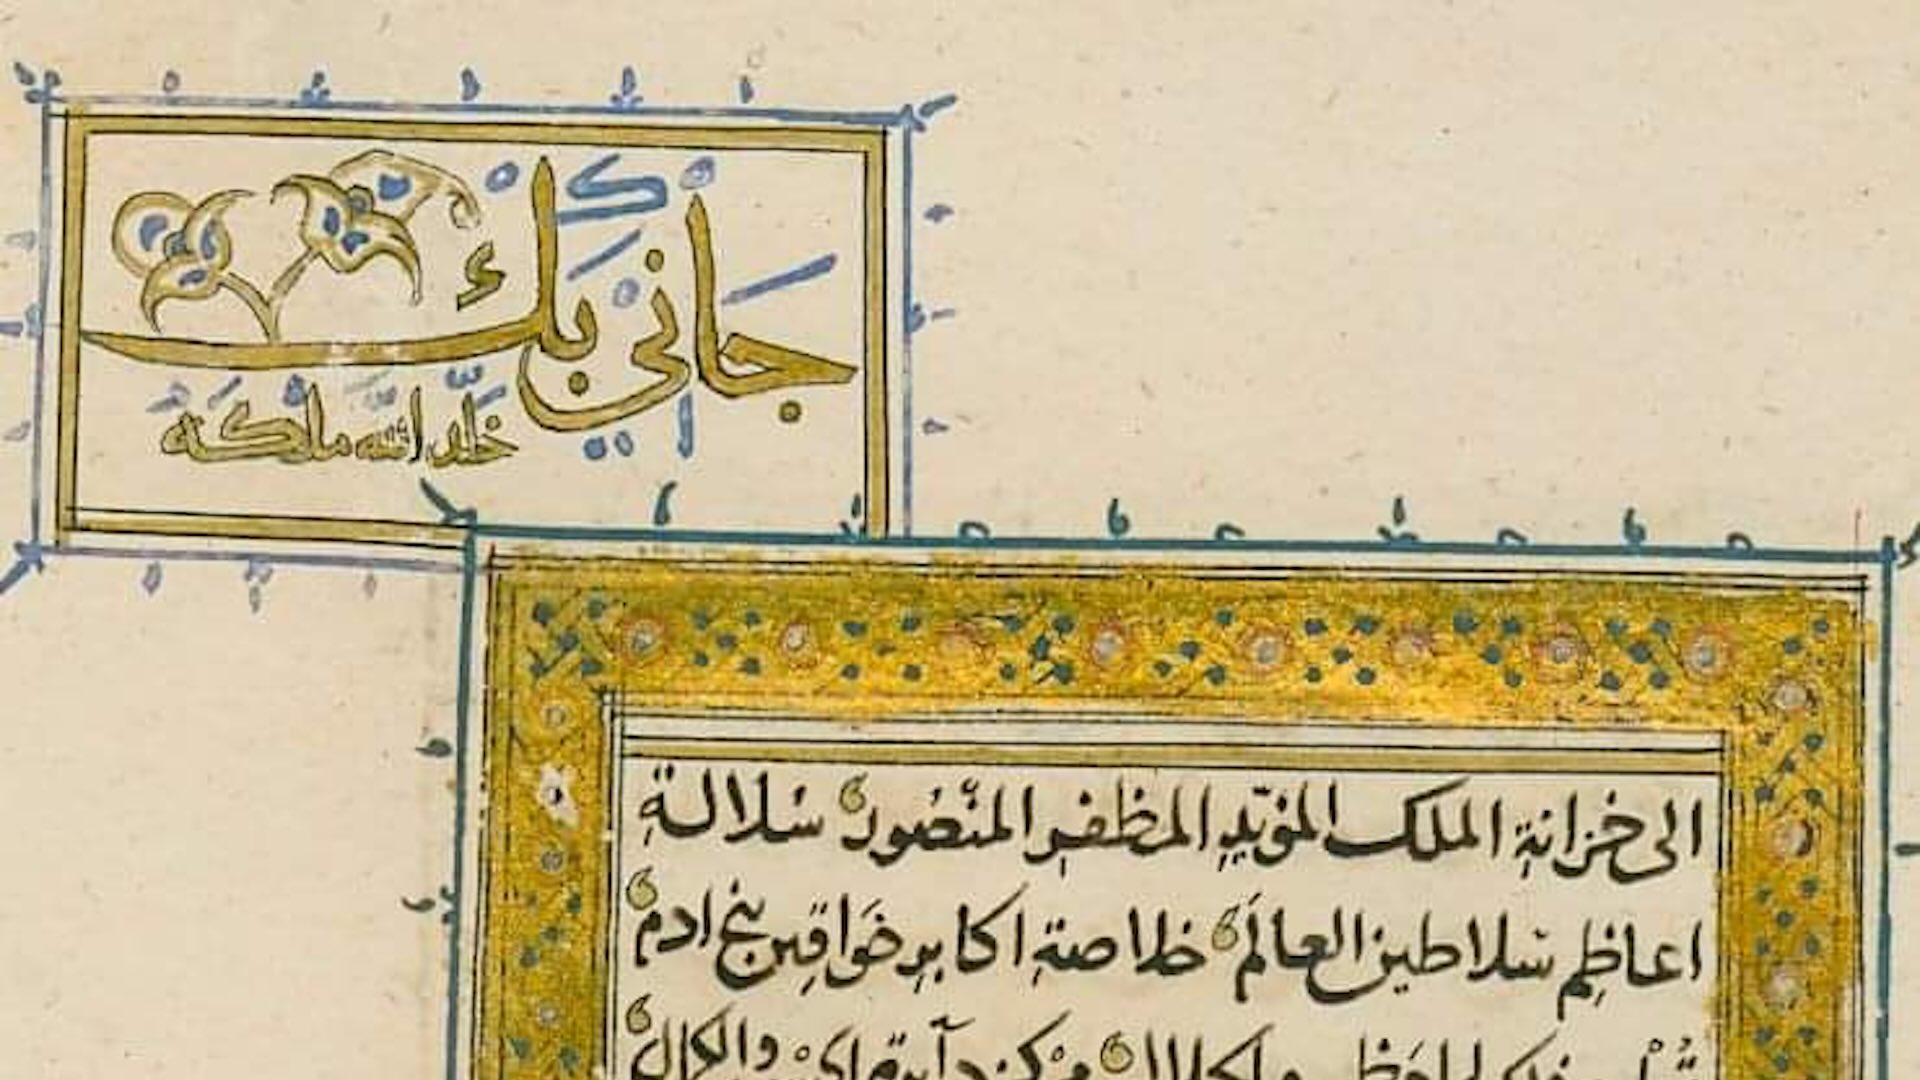 جاني بك
خلّد الله ملكه
الى خزانةِ الملك المؤيّدِ المظفرِ المنصُورِ سُلالةِ
اعاظِمِ سَلاطينِ العالَمِ خلاصةِ اكابرِ خَواقينِ بني ادم